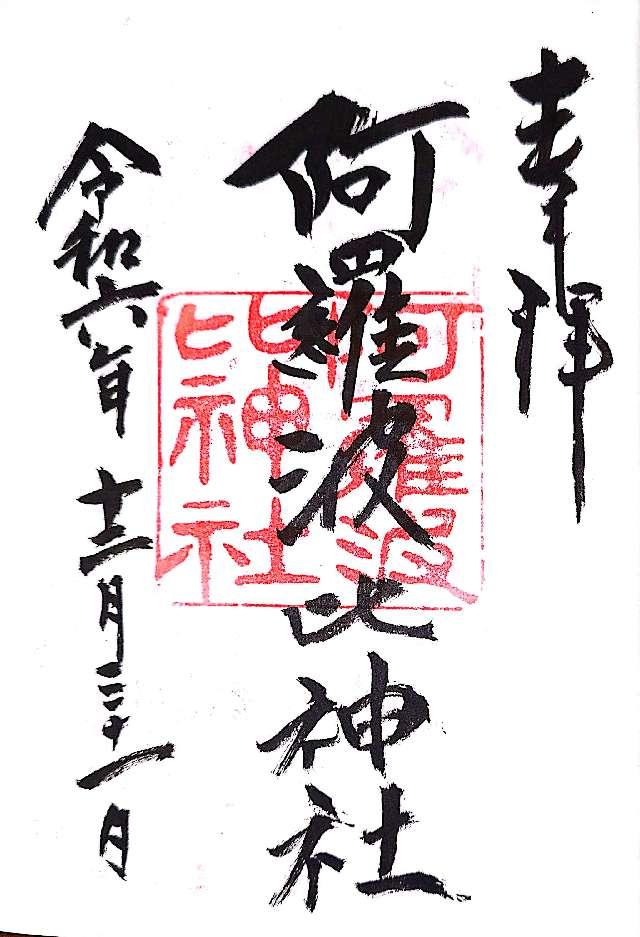 奉拝
阿羅波比神社
阿羅波
比神社
令和六年十二月三十一日